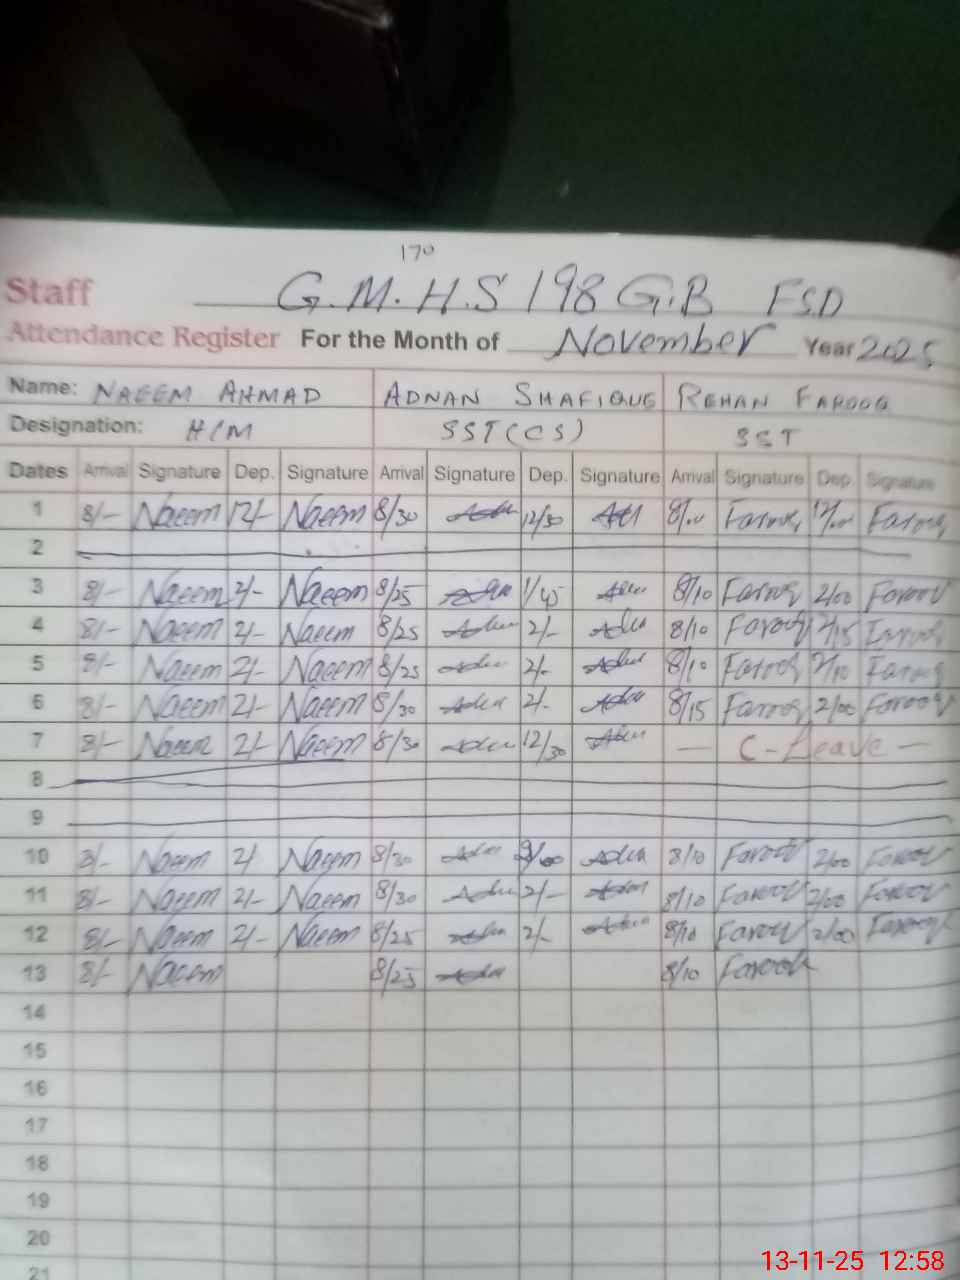 170
Staff G.M.H.S 198 G.B FSD
Attendance Register For the Month of November Year 2025
Name: NAEEM AHMAD ADNAN SHAFIQUE REHAN FAROOQ
Designation: H/M SST(CS) SST
Dates Arrival Signature Dep. Signature Arrival Signature Dep. Signature Arrival Signature Dep. Signature
1 8/- Naeem 12/- Naeem 8/30 12/30 8/00 Farooq 12/00 Farooq
2
3 8/- Naeem 2/- Naeem 8/25 1/45 8/10 Farooq 2/00 Farooq
4 8/- Naeem 2/- Naeem 8/25 2/- 8/10 Farooq 2/15 Farooq
5 8/- Naeem 2/- Naeem 8/25 2/- 8/10 Farooq 2/10 Farooq
6 8/- Naeem 2/- Naeem 8/30 2/- 8/15 Farooq 2/00 Farooq
7 8/- Naeem 2/- Naeem 8/30 12/30 — C-Leave —
8
9
10 8/- Naeem 2/ Naeem 8/30 8/10 Farooq 2/00 Farooq
11 8/- Naeem 2/- Naeem 8/30 2/- 8/10 Farooq 2/00 Farooq
12 8/- Naeem 2/- Naeem 8/25 2/- 8/10 Farooq 2/00 Farooq
13 8/- Naeem 8/25 8/10 Farooq
14
15
16
17
18
19
20
21
13-11-25 12:58